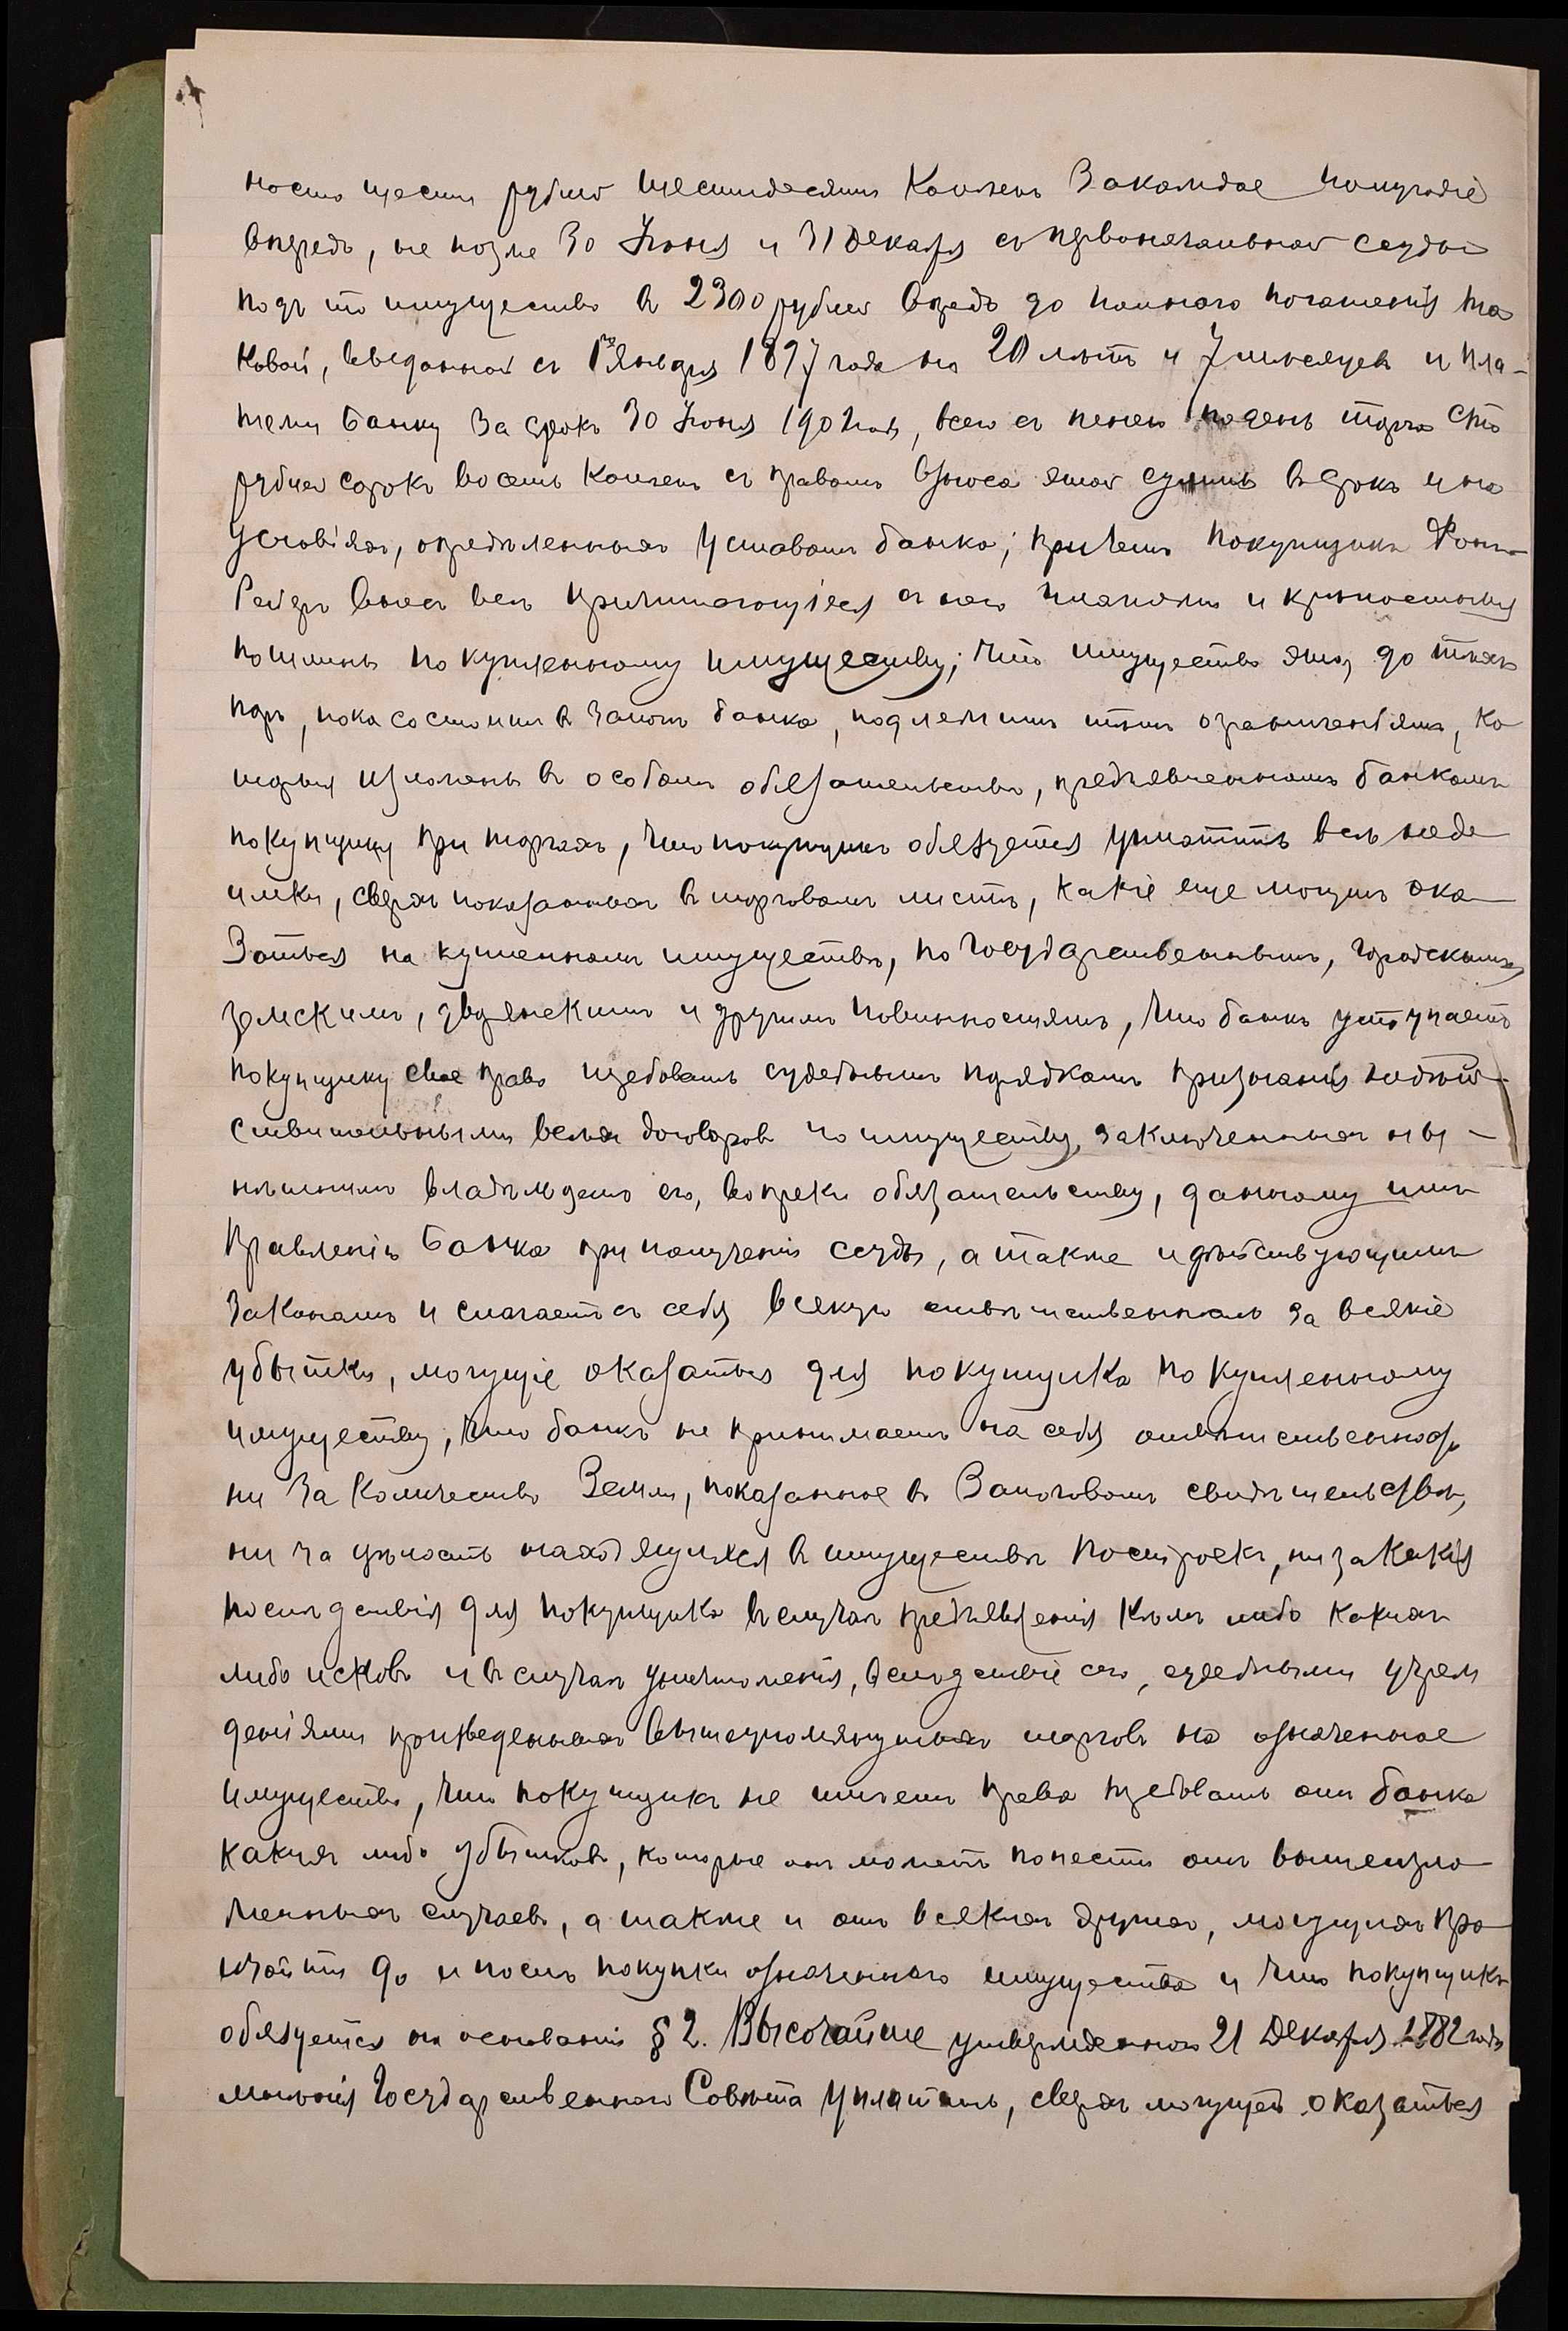 носто шести рублей шестидесяти Копѣекъ за каждое полугодіе
впредь, не позже 30 Іюня и 31 Декабря съ первоначальной ссуды
подъ то имущество въ 2300 рублей впредь до полнаго погашенія та
ковой, выданной съ 1го Января 1897 года на 20 лѣтъ и 7 мѣсяцевъ и пла-
тежи Банку за срокъ 30 Іюня 190 года, всего съ пенею по день торга сто
рублей сорокъ восемь Копѣекъ съ правомъ взноса этой суммы въ срокъ и на
условіяхъ, опредѣленныхъ Уставомъ банка; причемъ покупщикъ Фонъ-
внесъ всѣ причитающіеся съ него платежи и крѣпостныя
пошлины по купленному имуществу; что имущество это, до тѣхъ
поръ, пока состоитъ въ залогѣ банка, подлежитъ тѣмъ ограниченіямъ, ко
торыя изложены въ особомъ обязательствѣ, предъявленномъ банкомъ
покупщику при торгахъ, что покупщикъ обязуется уплатить всѣ недо
имки, сверхъ показанныхъ въ торговомъ листѣ, какіе еще могутъ ока
заться на купленномъ имуществѣ, по Государственнымъ, городскимъ,
земскимъ, дворянскимъ и другимъ повинностямъ, что банкъ уступаетъ
покупщику свое право требовать судебнымъ порядкомъ признанія недѣй-
ствительными всѣхъ договоровъ по имуществу, заключенныхъ ны-
нѣшнимъ владѣльцемъ его, вопреки обязательству, данному имъ
Правленію Банка при полученіи ссуды, а также и дѣйствующимъ
законамъ и слагаетъ съ себя всякую отвѣтственность за всякіе
убытки, могущіе оказаться для покупщика по купленному
имуществу, что банкъ не принимаетъ на себя отвѣтственность
ни за количество Земли, показанное въ Залоговомъ свидѣтельствѣ,
ни за цѣнность находящихся въ имуществѣ построекъ, ни за какія
послѣдствія для покупщика въ случаѣ предъявленія кѣмъ либо какихъ
либо исковъ и въ случаѣ уничтоженія, вслѣдствіе сего, судебными учреж
деніями произведенныхъ вышеупомянутыхъ торговъ на означенное
имущество, что покупщикъ не имѣетъ права требовать отъ банка
какихъ либо убытковъ, которые онъ можетъ понести отъ вышеизло
женныхъ случаевъ, а также и отъ всякихъ другихъ, могущихъ про
изойти до и послѣ покупки означеннаго имущества и что покупщикъ
обязуется на основаніи § 2. Высочайше утвержденнаго 21 Декабря 1882 года
мнѣнія Государственнаго Совѣта уплатить, сверхъ могущей оказаться